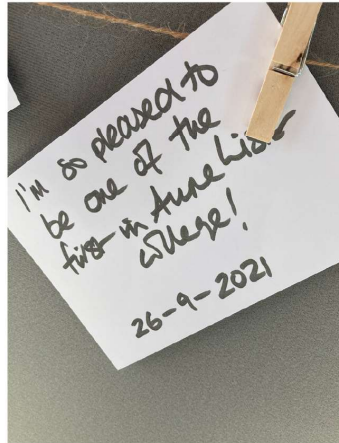 I'm so pleased to
be one of the
first in Anne Lister
college!
26-9-2021